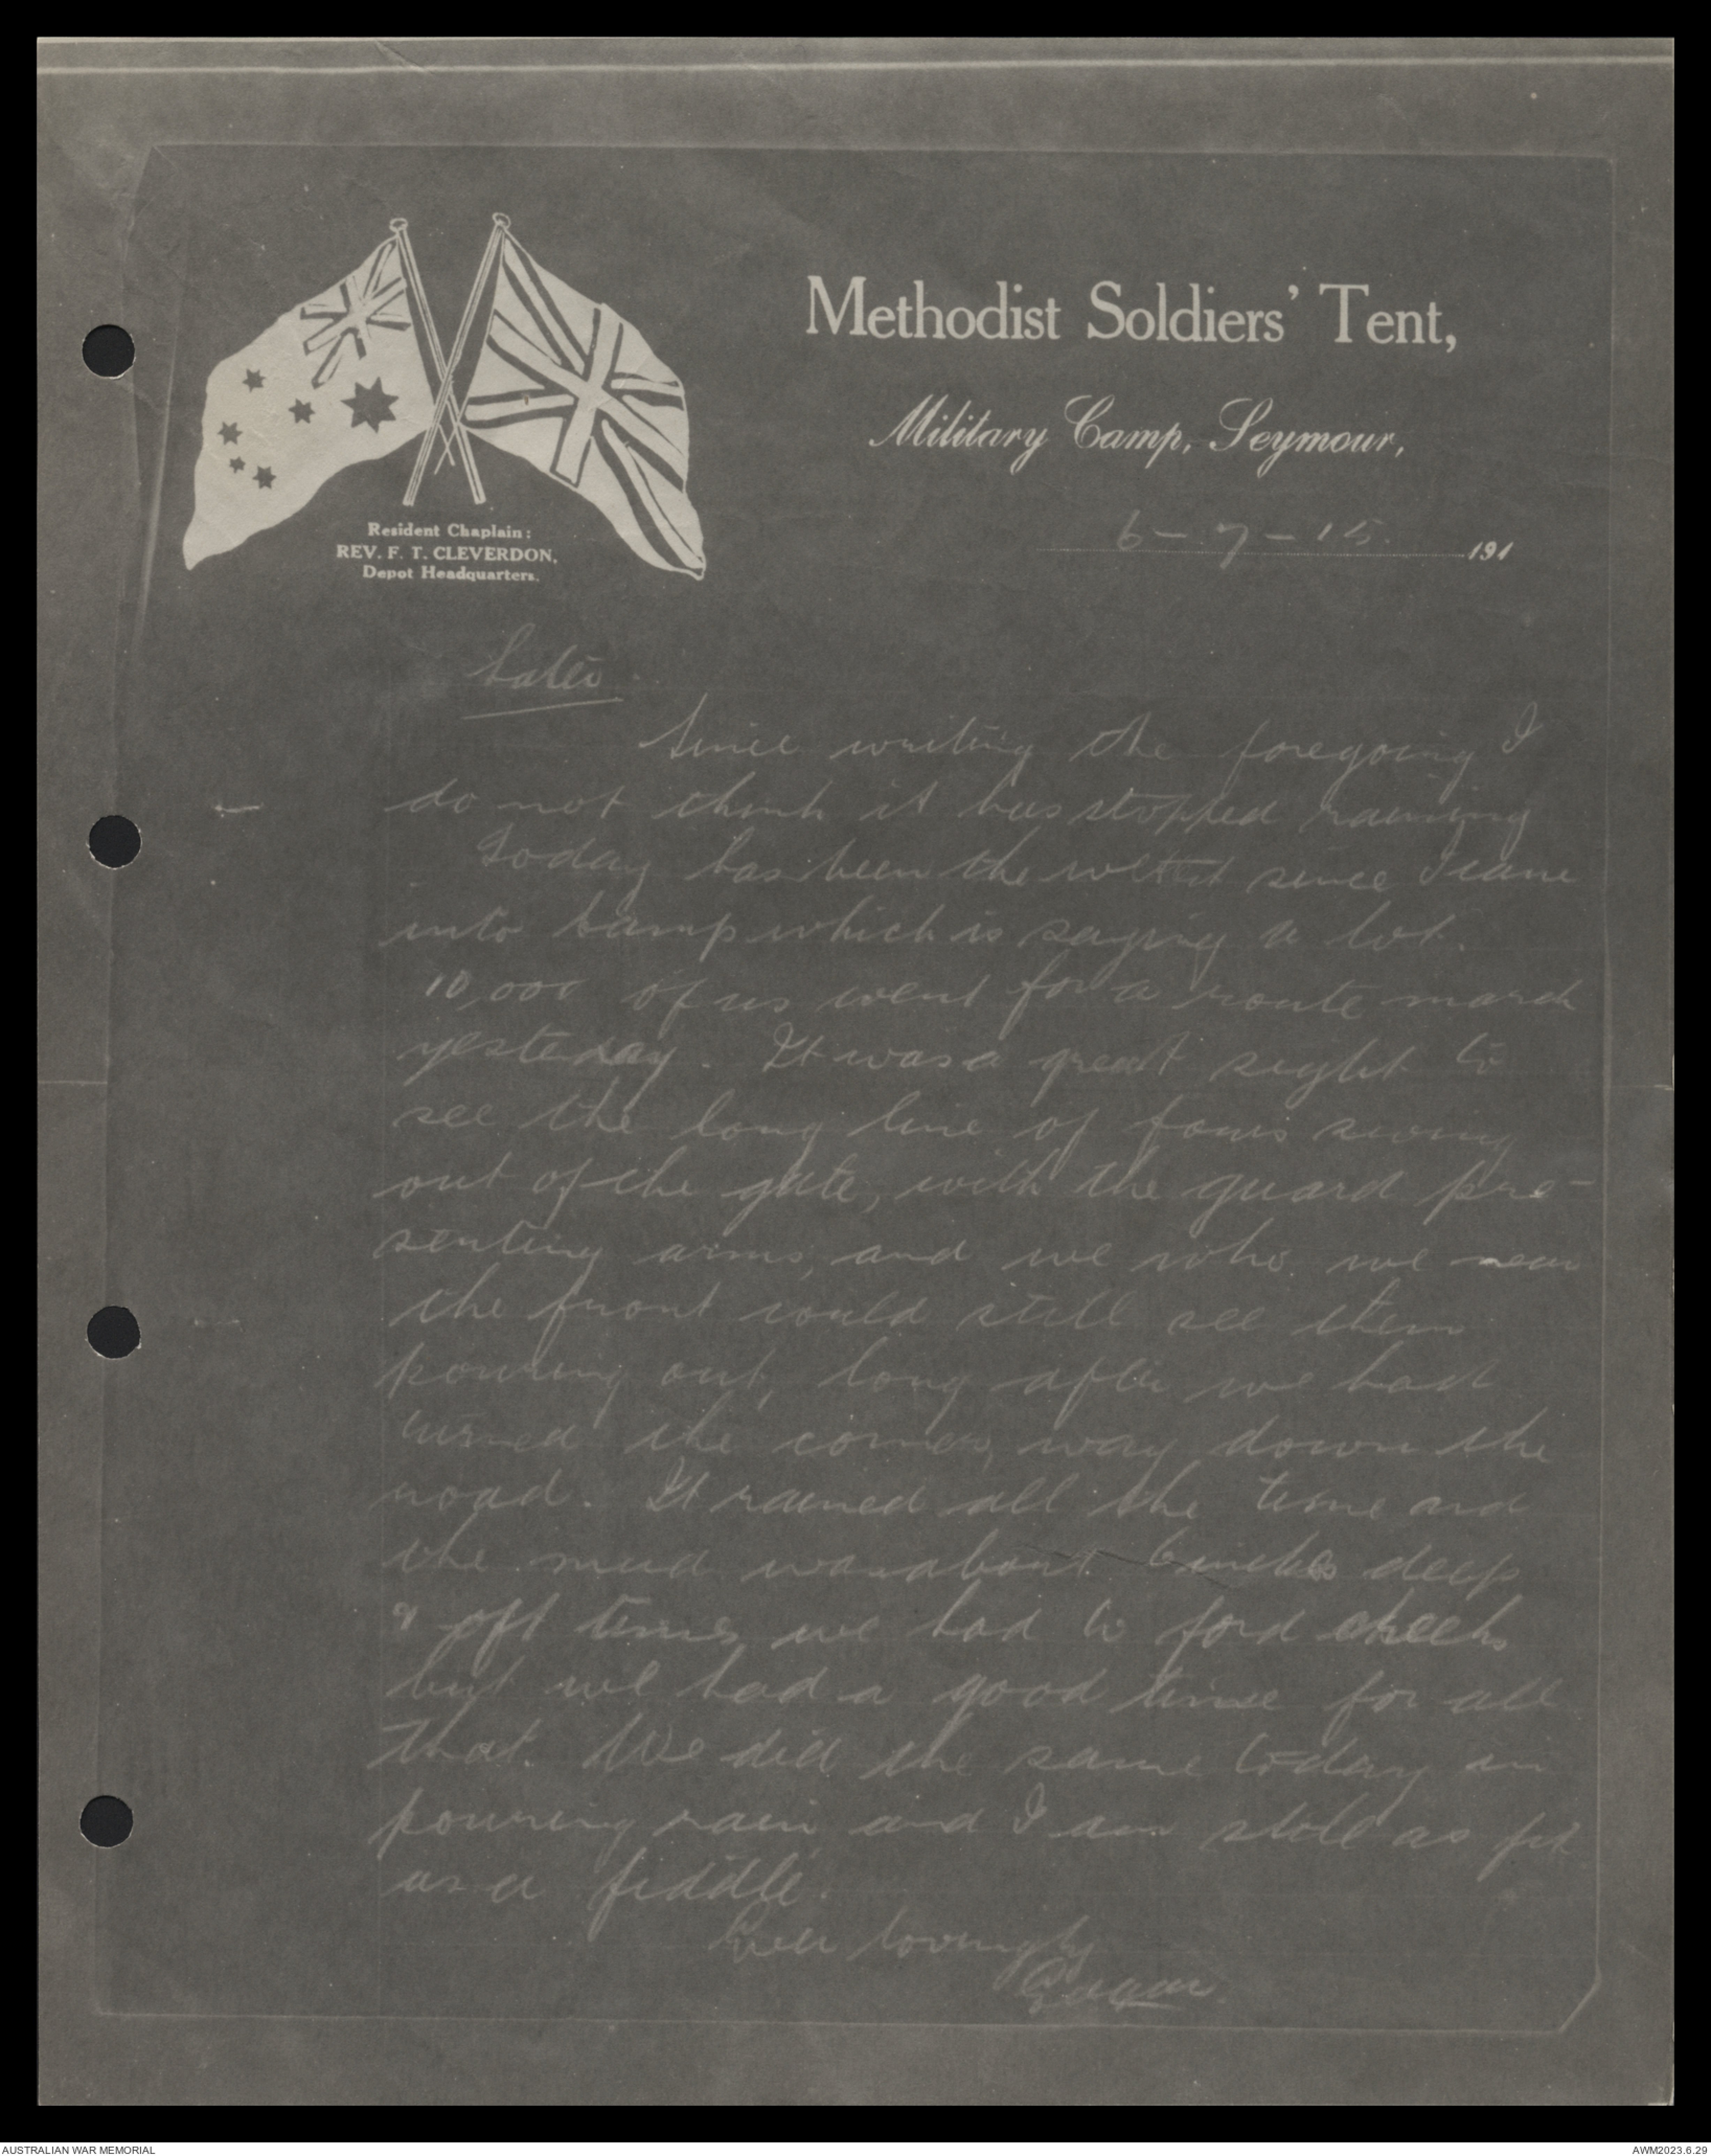 Methodist Soldiers' Tent,
Military Camp, Seymour,
6-7-15. 191
Resident Chaplain:
REV. F. T. CLEVERDON,
Depot Headquarters.
Later.
Since writing the foregoing I
do not think it has stopped raining
Today has been the wettest since I came
into camp which is saying a lot.
10,000 of us went for a route march
yesterday. It was a great sight to
see the long line of fours swing
out of the gate, with the guard pre-
senting arms, and we who we near
the front could still see them
pouring out, long after we had
turned the corner, way down the
road. It rained all the time and
the mud was about 6 inches deep
& oft times we had to ford creeks
but we had a good time for all
that. We did the same today in
pouring rain and I am still as fit
as a fiddle.
Ever lovingly
Edgar.
AUSTRALIAN WAR MEMORIAL
AWM2023.6.29